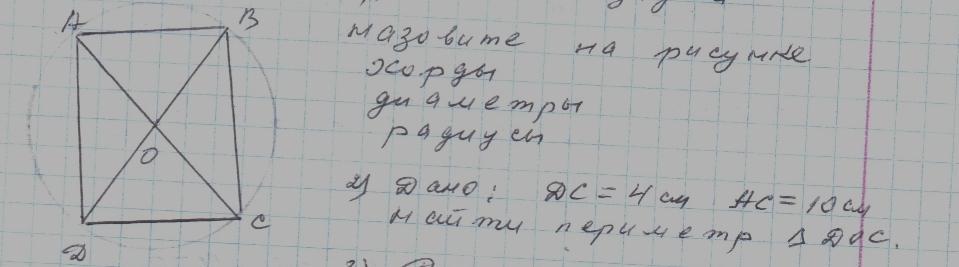 А В
назовите на рисунке
хорды
диаметры
радиусы
О
2) Дано: DC = 4 см АС = 10 см
найти периметр Δ DOC.
D C